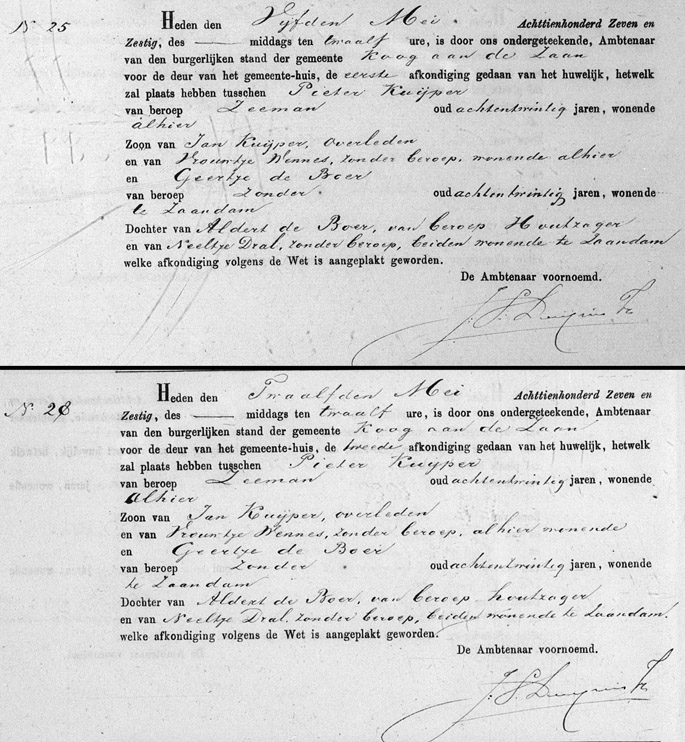 N 25
Heden den Vijfden Mei Achttienhonderd Zeven en
Zestig, des — middags ten twaalf ure, is door ons ondergeteekende, Ambtenaar
van den burgerlijken stand der gemeente Koog aan de Zaan
voor de deur van het gemeente-huis, de eerste afkondiging gedaan van het huwelijk, hetwelk
zal plaats hebben tusschen Pieter Kuijper
van beroep Zeeman oud achtentwintig jaren, wonende
alhier
Zoon van Jan Kuijper, overleden
en van Vrouwtje Wennes, zonder beroep, wonende alhier
en Geertje de Boer
van beroep Zonder oud achtentwintig jaren, wonende
te Zaandam
Dochter van Aldert de Boer, van beroep Houtzager
en van Neeltje Dral, zonder beroep, beiden wonende te Zaandam
welke afkondiging volgens de Wet is aangeplakt geworden.
De Ambtenaar voornoemd.
N. 28
Heden den Twaalfden Mei Achttienhonderd Zeven en
Zestig, des — middags ten twaalf ure, is door ons ondergeteekende, Ambtenaar
van den burgerlijken stand der gemeente Koog aan de Zaan
voor de deur van het gemeente-huis, de tweede afkondiging gedaan van het huwelijk, hetwelk
zal plaats hebben tusschen Pieter Kuijper
van beroep Zeeman oud achtentwintig jaren, wonende
alhier
Zoon van Jan Kuijper, overleden
en van Vrouwtje Wennes, zonder beroep, alhier wonende
en Geertje de Boer
van beroep Zonder oud achtentwintig jaren, wonende
te Zaandam
Dochter van Aldert de Boer, van beroep houtzager
en van Neeltje Dral, zonder beroep, beiden wonende te Zaandam.
welke afkondiging volgens de Wet is aangeplakt geworden.
De Ambtenaar voornoemd.